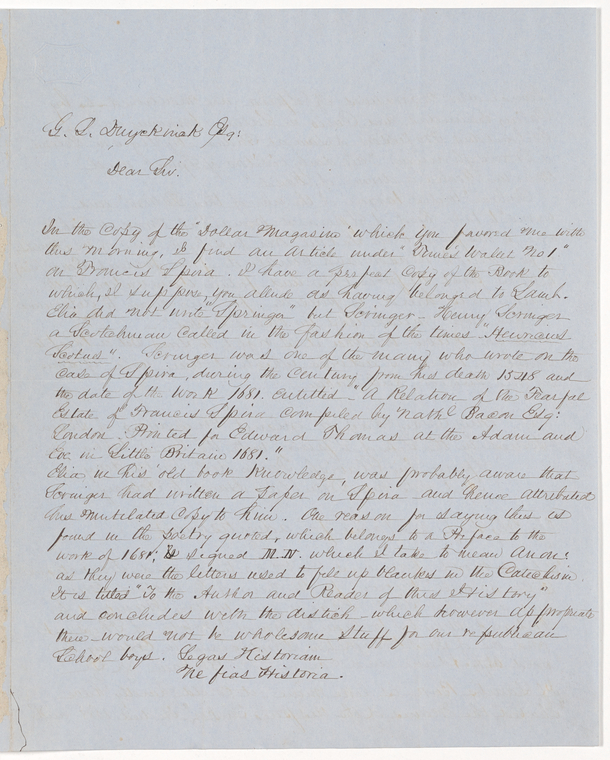 G. L. Duyckinak Esq:
Dear Sir.
In the Copy of the "Dollar Magazine" which you favored me with
this morning, I find an article under "Time's Wallet No 1"
on Francis Spira. I have a perfect Copy of the Book to
which, I suppose, you allude as having belonged to Lamb.
Elia did not write "Springer" but Scringer - Henry Scringer
a Scotchman called in the fashion of the times "Henricus
Scotus". Scringer was one of the many who wrote on the
Case of Spira, during the Century from his death 1548 and
the date of the work 1681. entitled "A Relation of the Fearful
Estate of Francis Spira compiled by Nathl Bacon Esq:
London. Printed for Edward Thomas at the Adam and
Eve in Little Britain 1681."
Elia, in his old book knowledge, was probably aware that
Scringer had written a Paper on Spira and hence attributed
his mutilated Copy to him. One reason for saying this is
found in the Poetry quoted, which belongs to a Preface to the
work of 1681; & signed M.N. which I take to mean Anon:
as they were the letters used to fill up blanks in the Catechism.
It is titled "To the Author and Reader of this History"
and concludes with the distich - which however appropriate
there would not be wholesome stuff for our republican
School boys. Legas Historiam
Ne fias Historia.